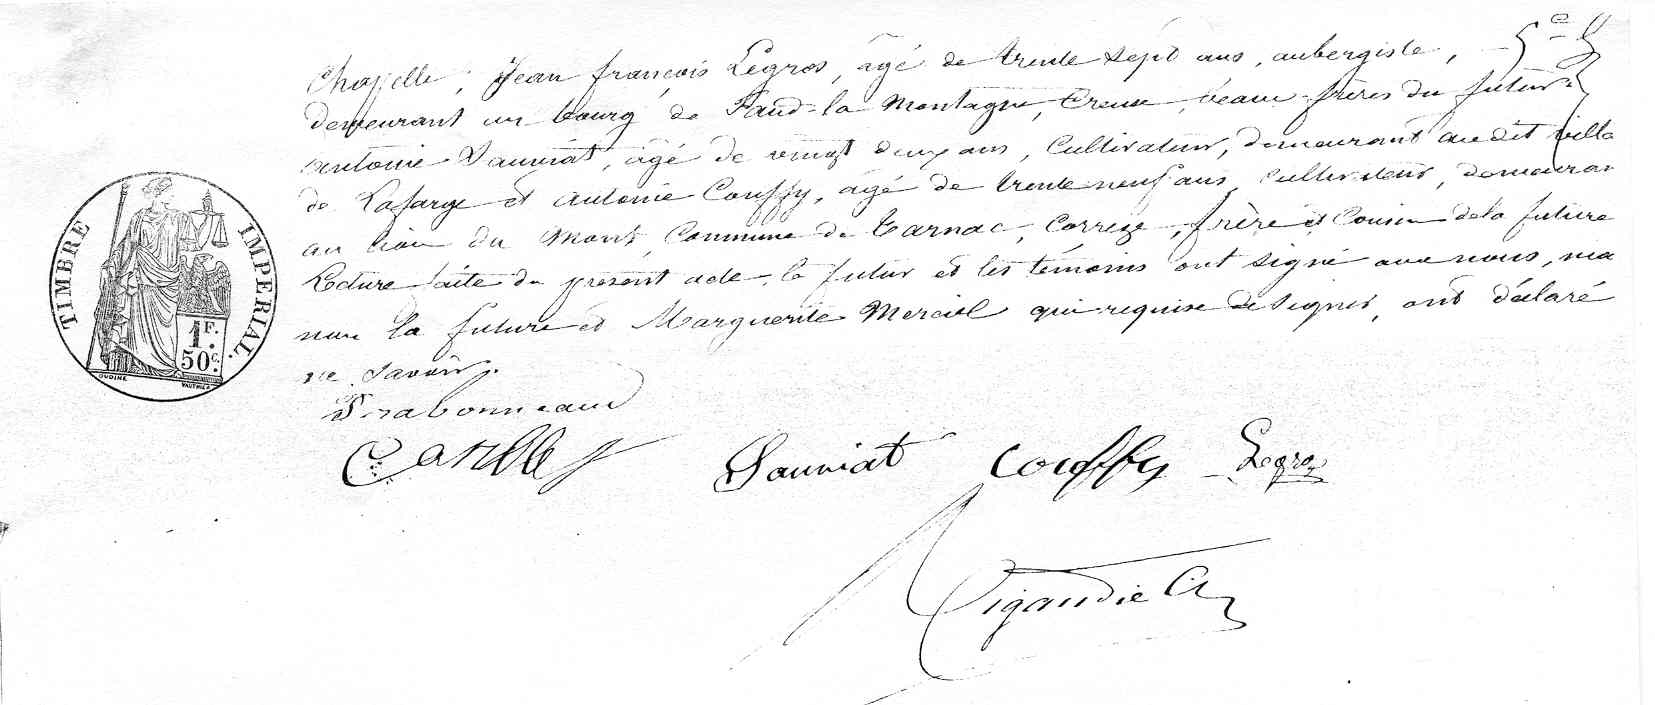 Chapelle, Jean françois Legros, âgé de trente sept ans, aubergiste,
demeurant au bourg de Faud-la Montagne, Creuse, beaux-frères du futur.
antonie Sauniat, âgé de vingt deux ans, Cultivateur, demeurant au dit villa
de Lafarge et antonie Couffy, âgé de trente neuf ans, Cultivateur, demeuran
au lieu du Mont, Commune de Tarnac, Correze, frère et Cousin de la future
Lecture faite du présent acte, le futur et les témoins ont signé avec nous, ma
non la future et Marguerite Merciel qui requise de signer, ont déclaré
ne savoir.
TIMBRE IMPERIAL.
1F.
50c.
OUDINÉ
Sauniat Couffy Legros
Vigaudie